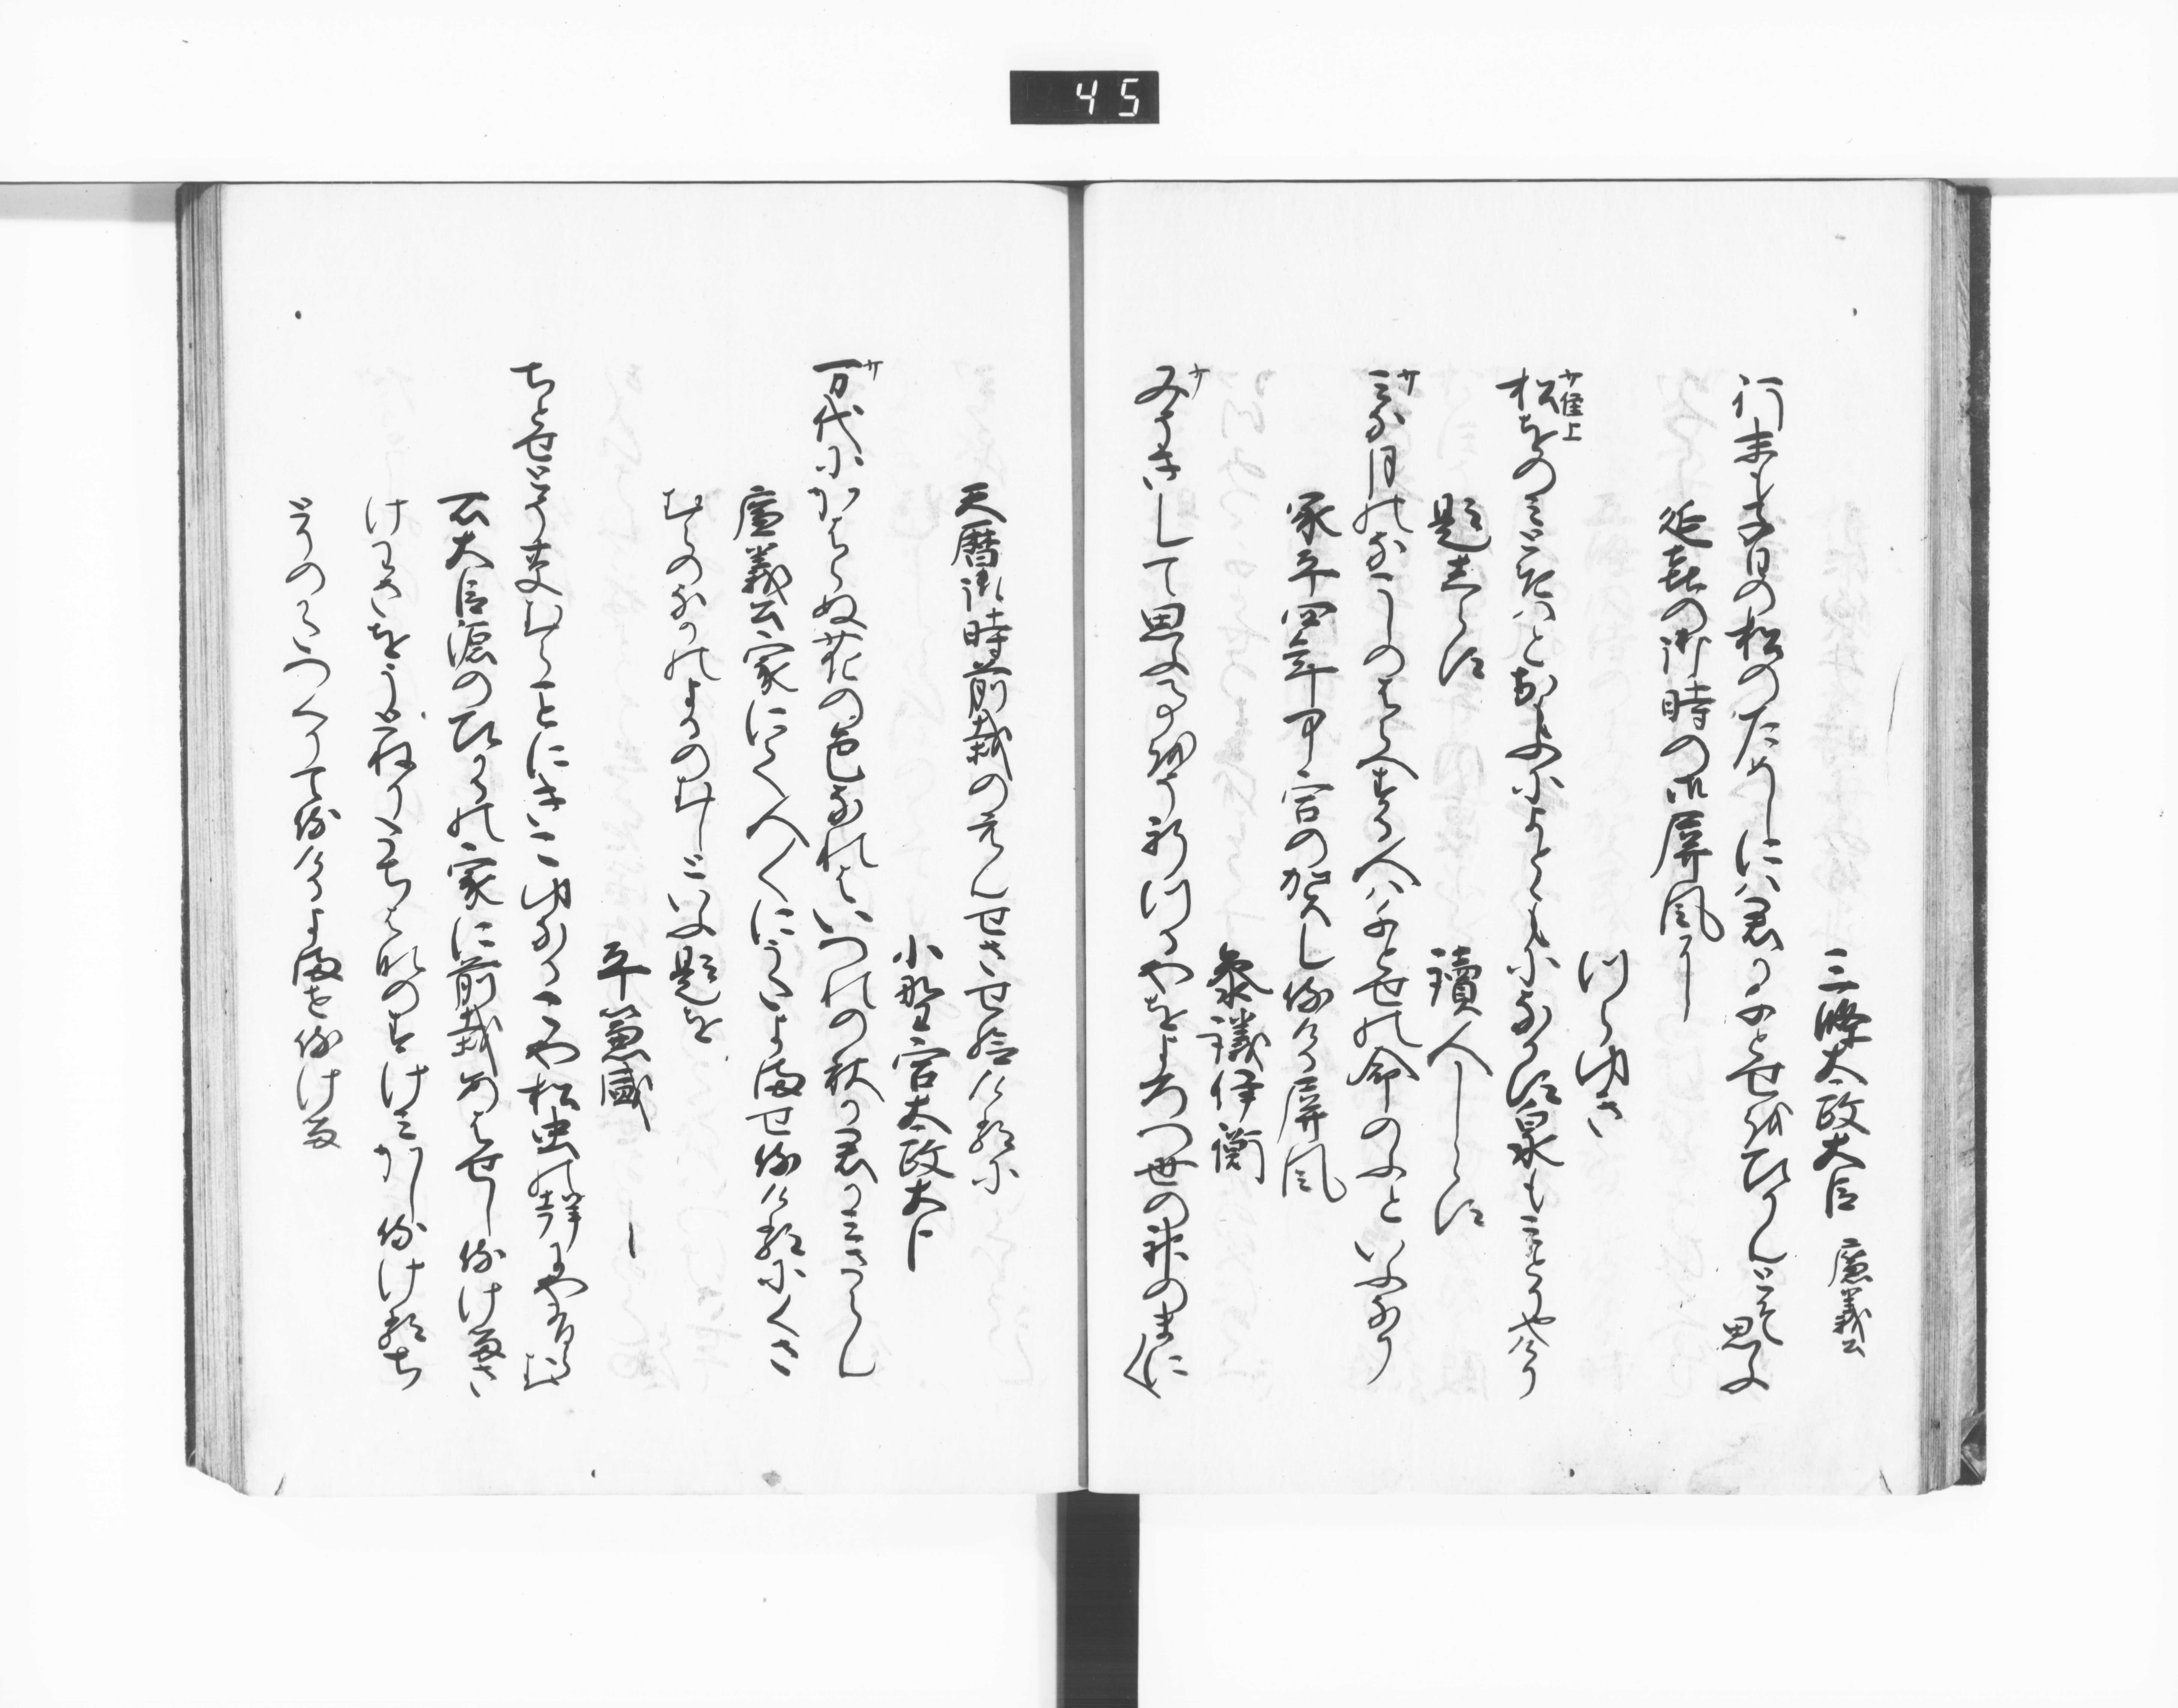 45
三條太政大臣 廉義公
行末も子日の松のためしには君かちとせをひかんとそ思ふ
延喜の御時の御屏風に
つらゆき
サ雑上
松をのみときはとおもふによとともになかす泉もみとりなりけり
題しらす 讀人しらす
サ
みな月のなこしのはらへする人はちとせの命のふといふなり
承平四年中宮の賀し侍ける屏風
參議伊衡
サ
みそきして思ふ事をそ祈りつるやをよろつ世の神のまに〱
天暦御時前栽のえんせさせ給けるに
小野宮太政大臣
サ
万代にかはらぬ花の色なれはいつれの秋か君かみさらん
廉義公家にて人〱にうたよませ侍けるにくさ
むらのなかのよるのむしといふ題を
平兼盛
ちとせとそ草むらことにきこゆなるこや松虫の聲にやあるらむ
右大臣源のひかるの家に前栽あはせし侍けるま
けわさをうとねりたちはなのすけみかし侍ける千
とりのかたつくりて侍けるよませ侍ける